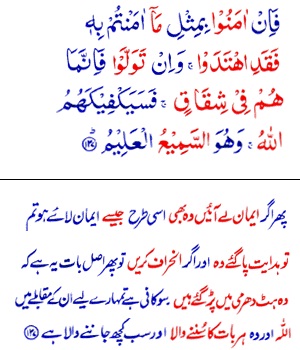 فَاِنْ اٰمَنُوْا بِمِثْلِ مَاۤ اٰمَنْتُمْ بِهٖ
فَقَدِ اهْتَدَوْا ۚ وَاِنْ تَوَلَّوْا فَاِنَّمَا
هُمْ فِیْ شِقَاقٍ ۚ فَسَیَكْفِیْكَهُمُ
اللّٰهُ ۚ وَهُوَ السَّمِیْعُ الْعَلِیْمُ ﴿۱۳۷﴾
پھر اگر ایمان لے آئیں وہ بھی اسی طرح جیسے ایمان لائے ہو تم
تو ہدایت پا گئے وہ اور اگر انحراف کریں تو پھر اصل بات یہ ہے کہ
وہ ہٹ دھرمی میں پڑ گئے ہیں سو کافی ہے تمہارے لیے ان کے مقابلے میں
اللہ اور وہ ہر بات کا سننے والا اور سب کچھ جاننے والا ہے ﴿۱۳۷﴾